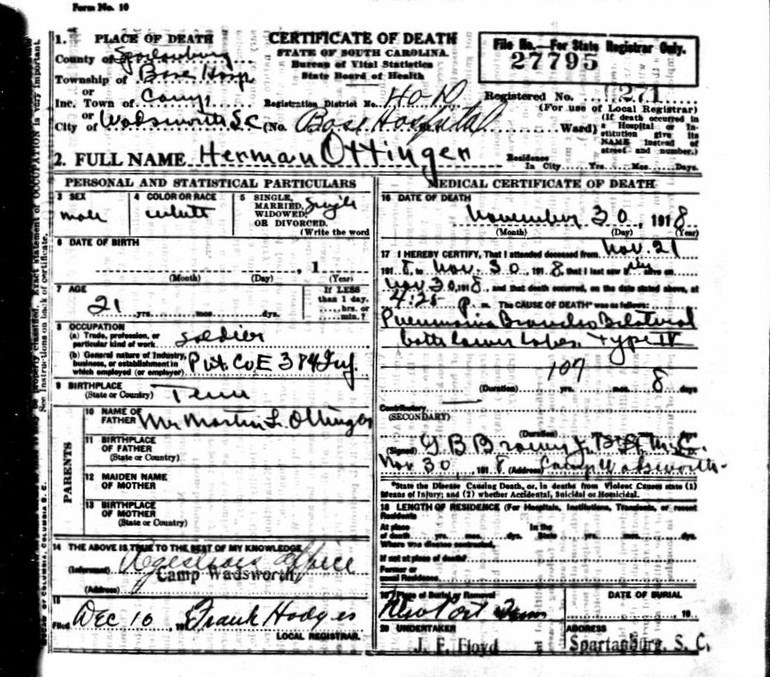 Form No. 10
1. PLACE OF DEATH
County of Spartanburg
Township of Base Hosp
or
Inc. Town of Camp
or
City of Wadsworth S.C. (No. Base Hospital Ward)
CERTIFICATE OF DEATH
STATE OF SOUTH CAROLINA.
Bureau of Vital Statistics
State Board of Health
Registration District No. 40-D
File No.—For State Registrar Only.
27795
Registered No. 271
(For use of Local Registrar)
(If death occurred in
a Hospital or In-
stitution give its
NAME instead of
street and number.)
2. FULL NAME Herman Ottinger
Residence
In City Yrs. Mos. Days.
PERSONAL AND STATISTICAL PARTICULARS
3 SEX
male
4 COLOR OR RACE
white
5 SINGLE,
MARRIED,
WIDOWED,
OR DIVORCED.
(Write the word
single
6 DATE OF BIRTH
, 1
(Month) (Day) (Year)
7 AGE
21 yrs. mos. days.
If LESS
than 1 day,
hrs. or
min.?
8 OCCUPATION
(a) Trade, profession, or
particular kind of work. soldier
(b) General nature of Industry,
business, or establishment in
which employed (or employer) Pvt Co E 384 Inf.
9 BIRTHPLACE
(State or Country) Tenn
PARENTS
10 NAME OF
FATHER Mr Martin L. Ottinger
11 BIRTHPLACE
OF FATHER
(State or Country)
12 MAIDEN NAME
OF MOTHER
13 BIRTHPLACE
OF MOTHER
(State or Country)
14 THE ABOVE IS TRUE TO THE BEST OF MY KNOWLEDGE
(Informant) Office
Camp Wadsworth
(Address)
15
Filed Dec 16, 19 Frank Hodges
LOCAL REGISTRAR.
MEDICAL CERTIFICATE OF DEATH
16 DATE OF DEATH
November 30, 1918
(Month) (Day) (Year)
17 I HEREBY CERTIFY, That I attended deceased from Nov. 21
1918, to Nov. 30, 1918 that I last saw him alive on
Nov 30, 1918, and that death occurred, on the date stated above, at
4:25 P. m. The CAUSE OF DEATH* was as follows:
Pneumonia Broncho Bilateral
both lower lobes Type IV
107
(Duration) yrs. mos. 8 days
Contributory
(SECONDARY)
(Duration)
(Signed)
Nov 30 1918 (Address) Camp Wadsworth
*State the Disease Causing Death, or, in deaths from Violent Causes state (1)
Means of Injury; and (2) whether Accidental, Suicidal or Homicidal.
18 LENGTH OF RESIDENCE (For Hospitals, Institutions, Transients, or recent
Residents
At place In the
of death yrs. mos. days. State yrs. mos. days
Where was disease contracted,
if not at place of death?
Former or
usual Residence
19 Place of Burial or Removal
Newport Tenn
DATE OF BURIAL
, 19
20 UNDERTAKER
J. F. Floyd
ADDRESS
Spartanburg, S. C.